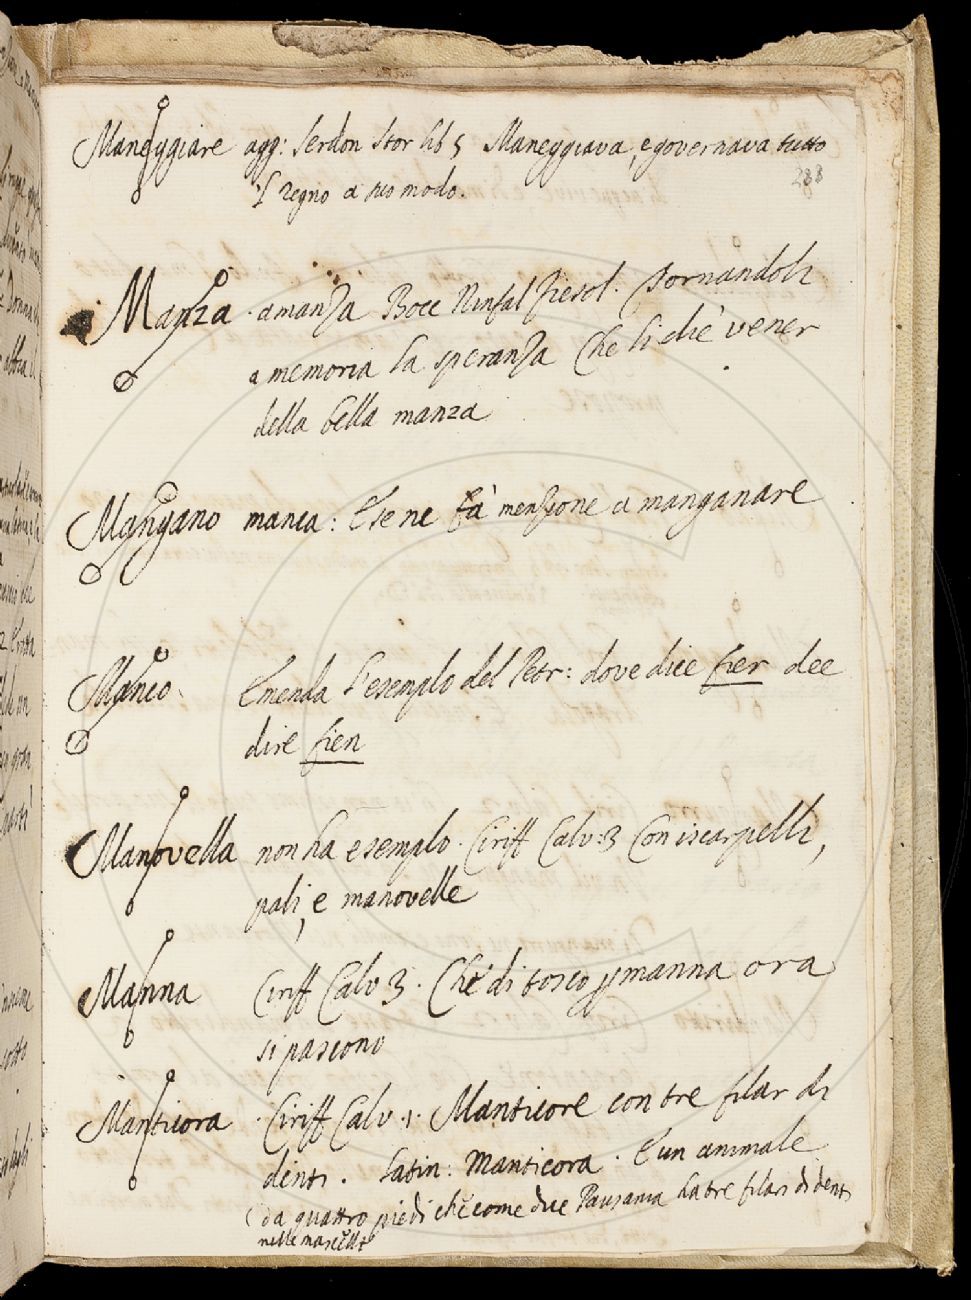 Maneggiare agg: Serdon Stor lib 5 Maneggiava, e governava tutto
288
'l regno a suo modo.
Manza. amanza Bocc Ninfal Fiesol. Tornandoli
a memoria la speranza Che li diè vener
della bella manza
Mangano manca: E se ne fà menzione a manganare
Manco Emenda l'esemplo del Petr: dove dice fier dee
dire fien
Manovella non ha esemplo. Ciriff Calv: 3 Con iscarpelli,
pali, e manovelle
Manna Ciriff Calv 3. Che di tosco p manna ora
si pascono
Manticora. Ciriff Calv. 1. Manticore con tre filar di
denti. Latin: Manticora. E un animale
da quattro piedi che come dice Pausania ha tre filari di denti
nelle mascelle